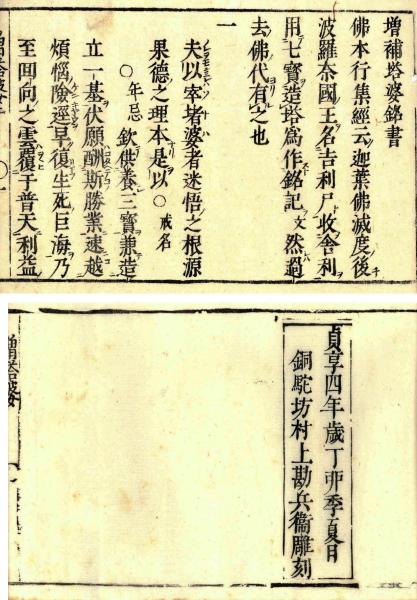 増補塔婆銘書
佛本行集經云迦葉佛滅度後
波羅奈國王名吉利尸收舍利
用七寳造塔爲作銘記文然過
去佛代有之也
一
夫以窣堵婆者迷悟之根源
果德之理本是以〇戒名
〇年忌欽供養三寳兼造
立一基伏願酬斯勝業速越
煩惱險逕早復生死巨海乃
至回向之雲覆于普天利益
貞享四年歳丁卯季夏日
銅駝坊村上勘兵衞雕刻